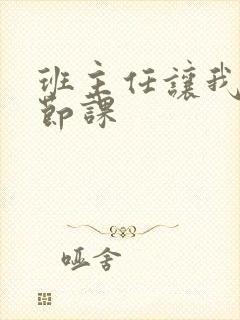 班主任讓我
節課
哑舍